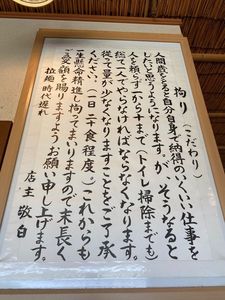 拘り（こだわり）
人間歳をとると自分自身で納得のいくいい仕事を
したいと思うようになりますが、そうなると
人を頼らず一から十まで（トイレ掃除までも）
総て一人でやらなければならなくなります。
従って量が少なくなりますことをご了承
ください。（一日二十食程度）これからも
一生懸命精進し拘ってまいりますので末長く
ご愛顧を賜りますようお願い申し上げます。
拉麺 時代遅れ
店主 敬白